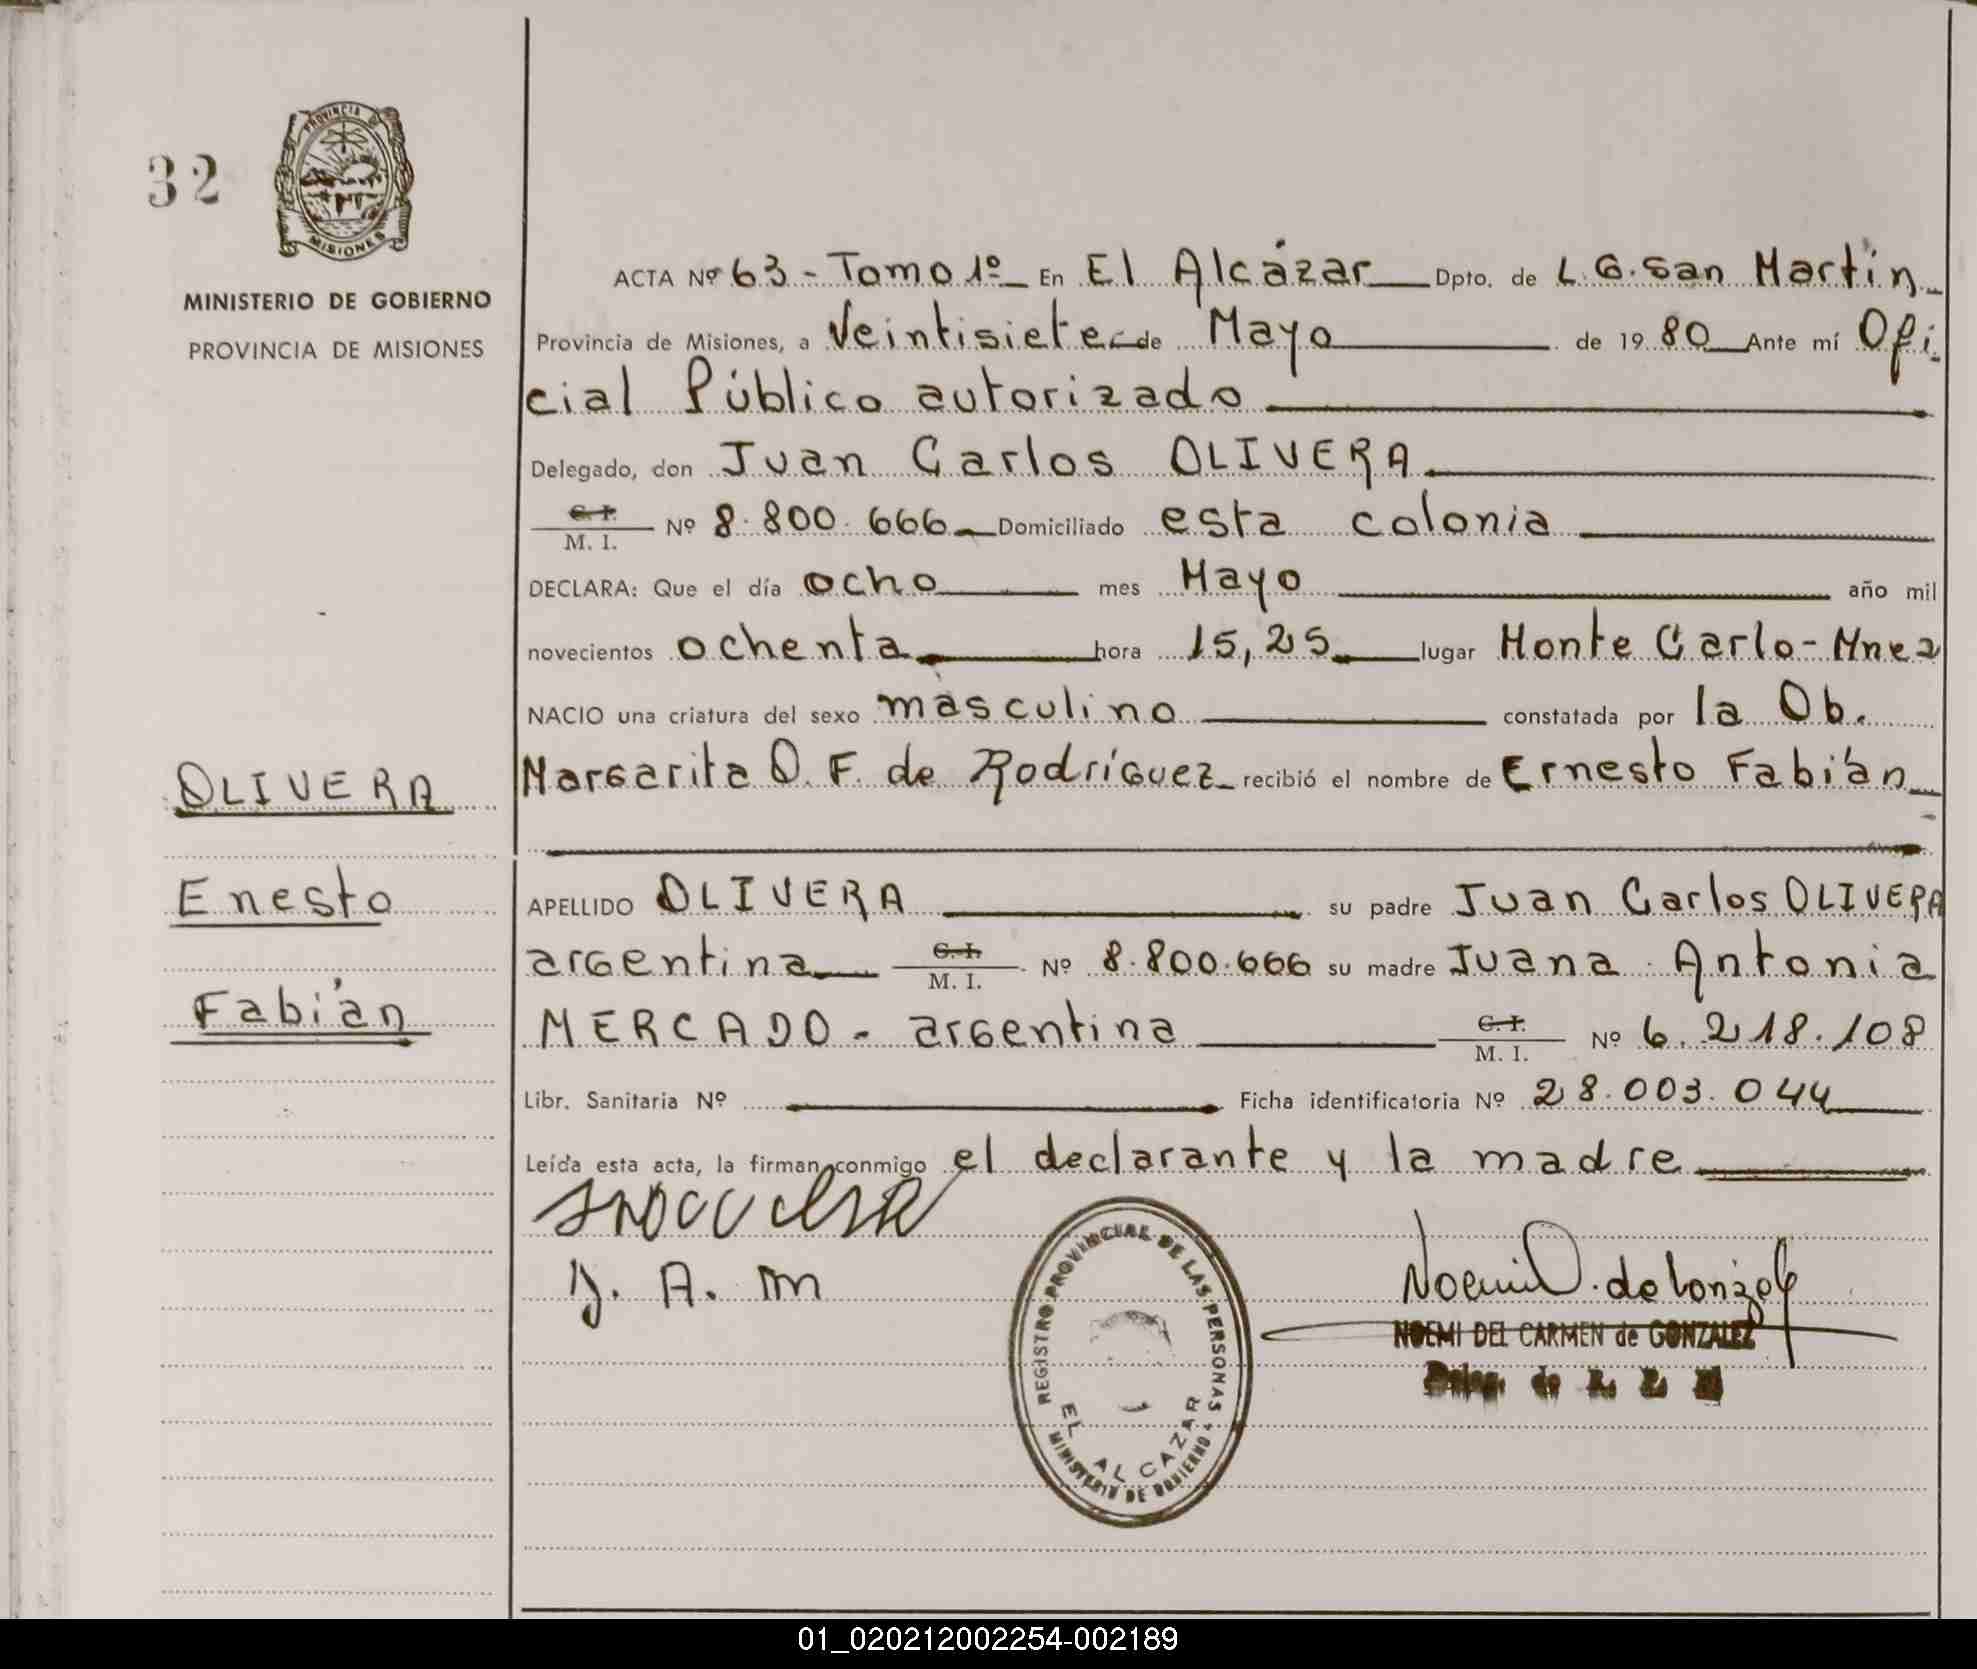 32
PROVINCIA DE
MISIONES
MINISTERIO DE GOBIERNO
PROVINCIA DE MISIONES
ACTA Nº 63 - Tomo 1º En El Alcázar Dpto. de L. G. San Martín
Provincia de Misiones, a Veintisiete de Mayo de 19 80 Ante mí Ofi
cial Público autorizado
Delegado, don Juan Carlos OLIVERA
C. I.
M. I. Nº 8.800.666 Domiciliado esta colonia
DECLARA: Que el día ocho mes Mayo año mil
novecientos ochenta hora 15,25 lugar Monte Carlo - Mnes
NACIO una criatura del sexo masculino constatada por la Ob.
Margarita O. F. de Rodríguez recibió el nombre de Ernesto Fabián
OLIVERA
Enesto
Fabián
APELLIDO OLIVERA su padre Juan Carlos OLIVERA
argentina C. I. M. I. Nº 8.800.666 su madre Juana Antonia
MERCADO - argentina C. I. M. I. Nº 6.218.108
Libr. Sanitaria Nº Ficha identificatoria Nº 28.003.044
Leída esta acta, la firman conmigo el declarante y la madre
J. A. M
REGISTRO PROVINCIAL DE LAS PERSONAS
EL ALCAZAR
MINISTERIO DE GOBIERNO
NOEMI DEL CARMEN de GONZALEZ
Deleg. de R.
01_020212002254-002189